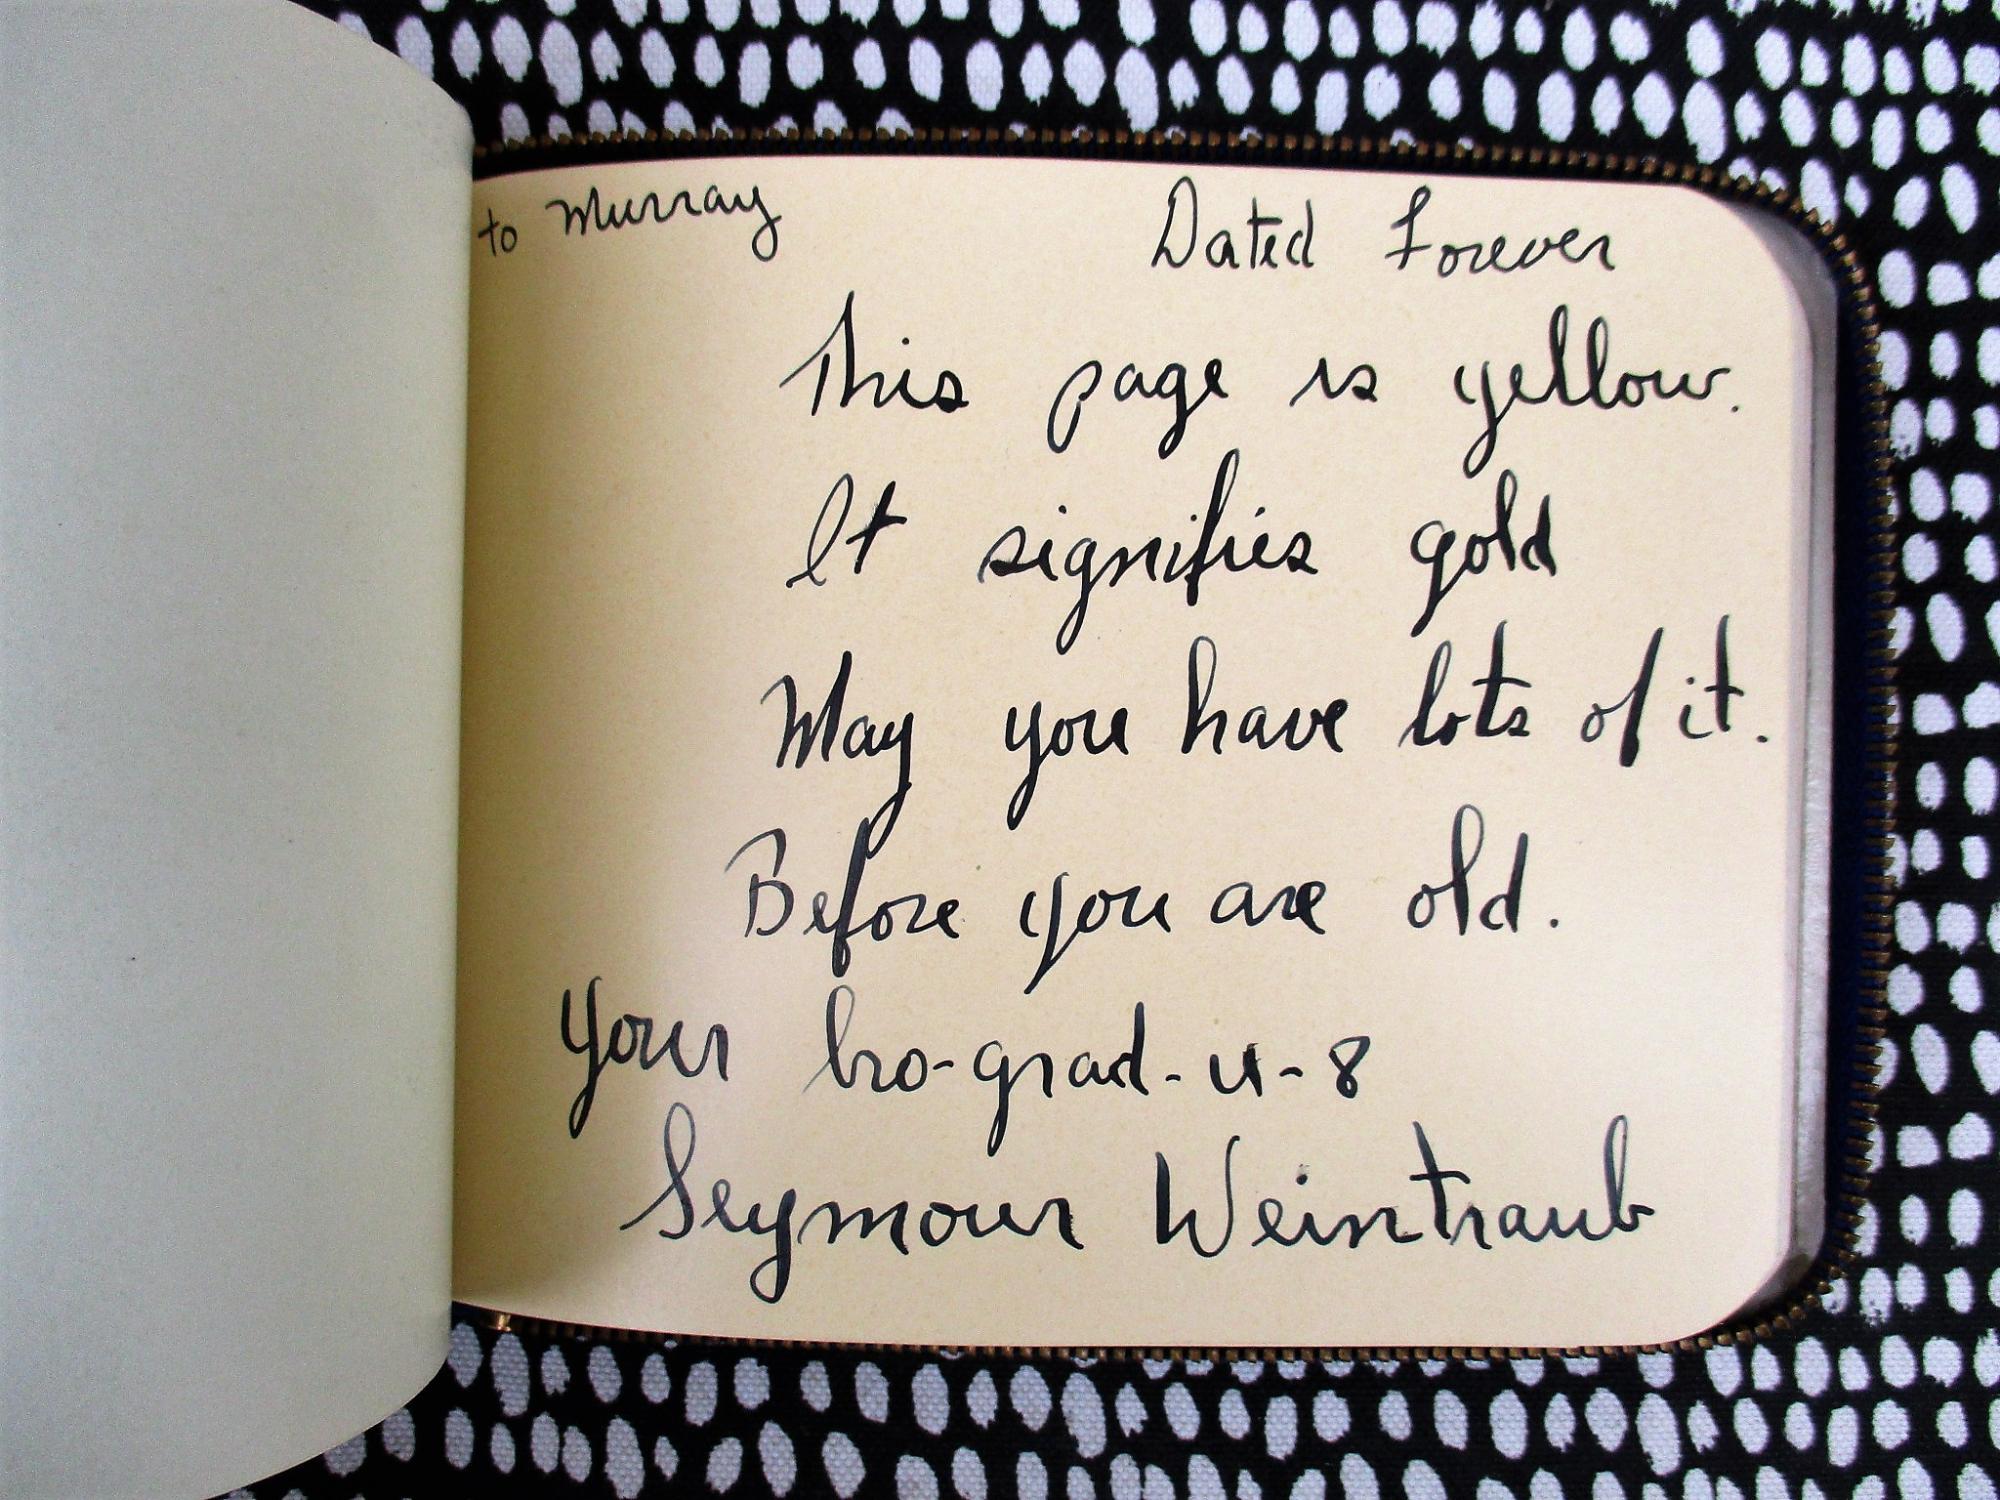 to Murray
Dated Forever
This page is yellow.
It signifies gold
May you have lots of it.
Before you are old.
Your bro-grad-u-8
Seymour Weintraub